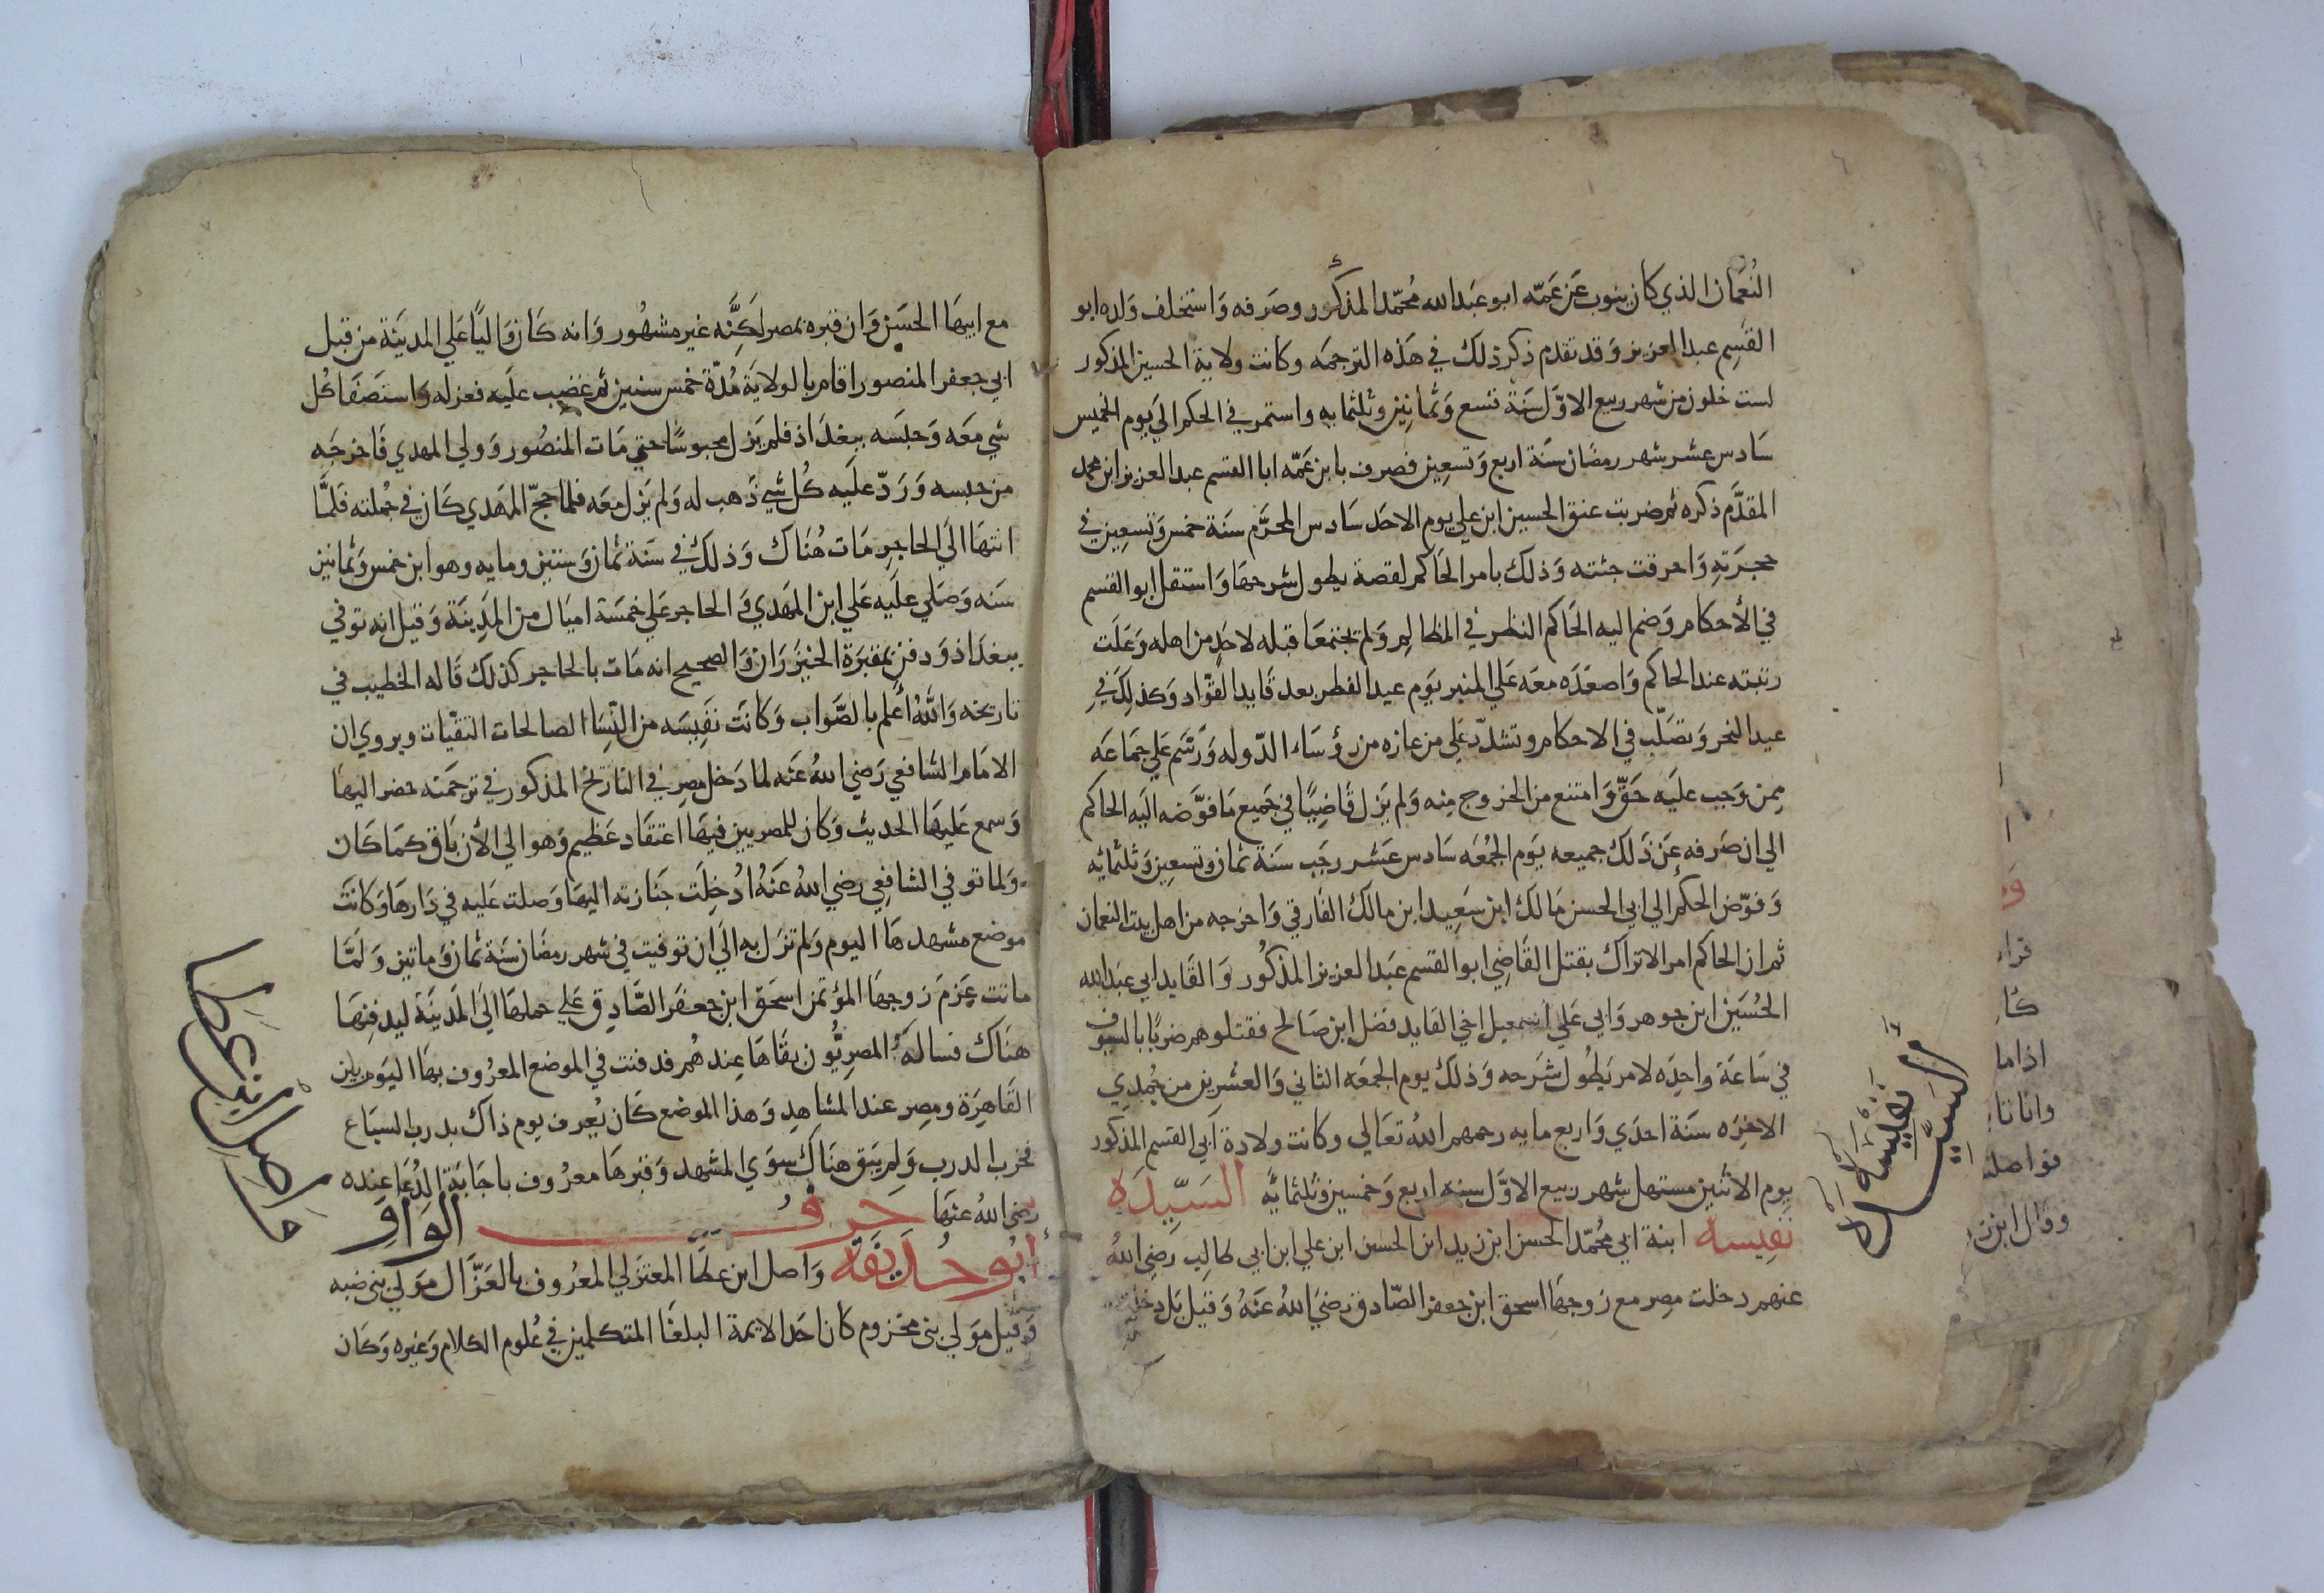 النُعمَان الذي كان ينوب عَن عَمّه ابو عَبد الله مُحمّد المذكور وصَرفه وَاستخلف وَلده ابو
القَسِم عبد العزيز وَقد تقدم ذكر ذلك في هَذه الترجمَه وكانت ولاية الحسين المذكور
لست خلون من شهر ربيع الاوّل سَنَة تسع وَثمانين وثلثمايه واستمر في الحكم الي يوم الخميس
سَادس عشر شهر رمضان سَنَة اربع وَتسعِين فصرف بابن عَمّه ابا القسم عبد العزيز ابن محمد
المقدَّم ذكره ثم ضربت عنق الحسين ابن علي يوم الاحد سَادس المحرّم سَنَة خمس وَتسعِين في
حجرَتهِ وَاحرقت جثته وَذلك بامر الحَاكم لقصة يطول شرحهَا وَاستقل ابو القسم
في الأحكام وَضم اليه الحَاكم النظر في المظالِم وَلم يجتمعَا قبله لاحَدٍ من اهله وَعَلَت
رتبته عند الحاكم وَاصعَدَه معَه عَلي المنبر يَوم عيد الفطر بعد قَايد القوّاد وَكذلِكَ في
عيد النحر وَتصَلّب في الاحكام وتشدّد عَلي من عازه من رؤسَاء الدّوله وَرَسَّم عَلي جمَاعَه
مِمن وَجب عليَه حَقّ وَامتنع من الخروج مِنه وَلم يَزل قَاضِيًا في جَميع مَا فوَّضه اليَه الحاكم
الي ان صَرفه عَن ذَلكَ جميعه يَوم الجُمُعَه سَادس عَشر رجَب سَنَة ثمان وتسعِين وَثلثمائه
وَفوّض الحكم الي ابي الحسن مَالك ابن سَعِيد ابن مالك الفَارقي وَاخرجه من اهل بيت النعمان
ثم ان الحاكم امر الاتراك بقتل القَاضِي ابو القسم عَبد العزيز المذكُور وَالقَايد ابي عَبد الله
الحُسَين ابن جوهر وَابي عَلي اسمعيل اخي القايد فضل ابن صَالح فقتلوهم ضربًا بالسيوف
في سَاعَة واحِدِه لامر يَطُول شَرحه وَذلك يوم الجمعَه الثاني وَالعشرين من جمُدي
الاخرَه سَنَة احدَي وَاربع مايه رحمهم اللهُ تعَالي وكانت ولادة ابي القسم المذكور
يوم الاثنين مستهل شهر ربيع الاوّل سنه اربع وَخمسين وثلثمايَّه السَيِّدَه
نفِيسه ابنة ابي مُحمّد الحسن ابن زيد ابن الحسن ابن علي ابن ابي طالِب رضِي اللهُ
عنهم دخلت مِصر مع زَوجهَا اسحق ابن جعفر الصّادق رَضيَ اللهُ عَنهُ وَقيل بَل دخلت
السيده نفيسه
مع ابيهَا الحسَن وَان قبره بمصر لَكِنَّه غير مشهُور وَانه كَان وَاليًا عَلي المدينَة من قبل
ابي جعفر المنصور اقام بالولايَة مُدّة خمس سنين ثم غضِب عليَه فعزله واستصَفَا كُل
شي معَه وَحبسَه ببغدَاذ فلم يَزل محبوسًا حتي مَات المنصُور وَولي المهدي فَاخرجَه
من حبسه وَرَدّ عليَه كُل شي ذَهب له وَلم يَزل معَه فلما حجّ المهَدي كَان في جُملته فَلمَّا
انتهَا الَي الحاجر مَات هُنَاك وَذلكَ في سَنَة ثمان وَستين ومايه وهو ابن خمس وَثمانين
سَنه وَصَلي عليَه عَلي ابن المهَدي في الحاجر عَلي خمسَة اميَال من المَدِينَة وَقيل انه توفي
ببغدَاذ وَدفن بمقبَرَة الخيزرَان وَالصحيح انه مَات بالحاجر كذلك قَاله الخطيب في
تاريخه وَاللهُ أعلم بالصَّواب وَكانَت نفِيسَه من النّسَا الصالحات التقيّات ويروي ان
الامَام الشافعي رَضي اللهُ عَنه لما دَخل مِصر في التاريخ المذكور في ترجَمته حضر اليهَا
وَسمع عَليهَا الحديث وَكان للمصريين فيهَا اعتقَاد عَظيم وَهو الي الأن بَاق كمَا كَان
وَلما توفي الشافعِي رضي اللهُ عَنهُ ادُخِلَت جَنَازته اليهَا وَصلت عَليه في دَارهَا وَكانَت
موضع مشهدهَا اليوم وَلم تزَل به الَي ان توفيت في شهر رمضَان سَنَة ثمان وَماتين وَلمَّا
ماتت عَزم زوجهَا المؤتمن اسحَق ابن جعفَر الصَّادِق عَلي حملهَا الَي المَدينَة ليدفِنهَا
هنَاك فسالهُ المصرِيُّون بقَاهَا عِندهُم فدفنت في الموضع المعرُوف بهَا اليَوم بين
القَاهِرَة ومِصر عند المشاهِدِ وَهذا الموضع كَان يُعرف يوم ذاك بدرب السبَاع
فخرب الدرب وَلم يَبق هنَاك سوَي المشهد وَقبرهَا معرُوف باجَابَة الدُعَا عِنده
رضي اللهُ عنهَا حرف الواو
ابُو حُذَيفَة وَاصل ابن عطَا المعتزلي المعرُوف بالغَزّال موَلي بني ضبه
وَقيل موَلي بني مخزوم كان احَد الايمة البلغَا المتكلمين في عُلوم الكلام وَغيره وَكَان
واصل ابن عطا